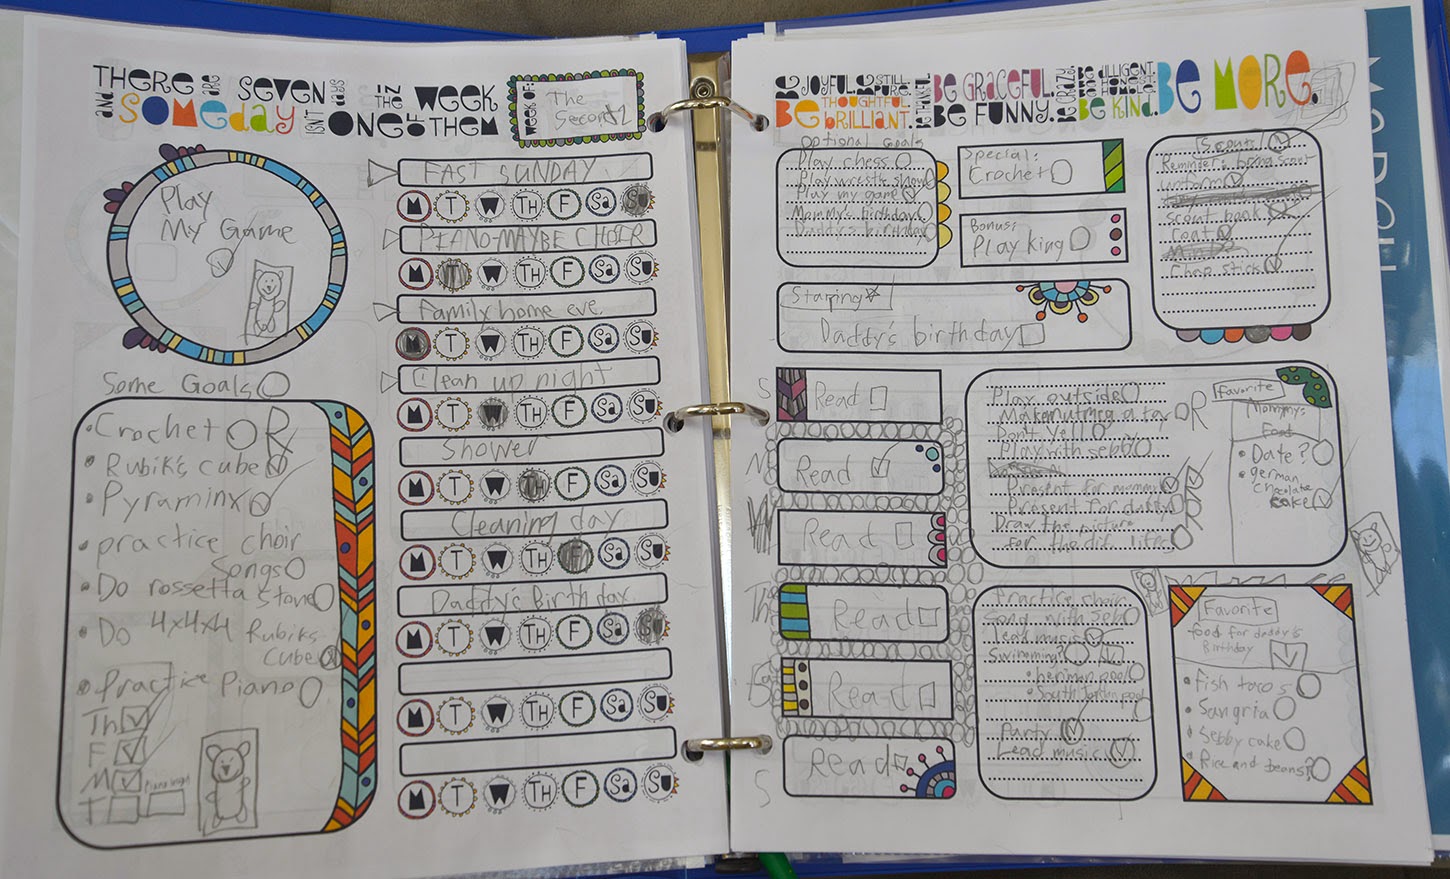 THERE ARE SEVEN days in THE WEEK
and Someday ISN'T ONE OF THEM
WEEK OF:
The
Second
Play
My Game
Some Goals
•Crochet R
• Rubik's cube
• Pyraminx
• practice choir
Songs
• Do rossetta stone
• Do 4x4x4 Rubiks
Cube
• practice piano
Th
F
M
T
FAST SUNDAY
M T W TH F Sa Su
PIANO-MAYBE CHOIR
M T W TH F Sa Su
Family home eve.
M T W TH F Sa Su
Clean up night
M T W TH F Sa Su
Shower
M T W TH F Sa Su
Cleaning day
M T W TH F Sa Su
Daddy's Birthday
M T W TH F Sa Su
M T W TH F Sa Su
M T W TH F Sa Su
BE JOYFUL. BE STILL. BE PURE. BE GRACEFUL. BE CRAZY. BE DILLIGENT. BE HONEST. BE MORE.
BE THOUGHTFUL. BRILLIANT. BE FUNNY. BE KIND.
optional goals
Play chess
Play my game
Mommy's birthday
Daddy's birthday
Special:
Crochet
Bonus:
Play king
Scouts
Reminders: bring Scout
uniform
scout book
Coat
Chap stick
Starring
Daddy's birthday
S
Read
M
Read
Read
Th
Read
Read
S
Read
Play outside
R
Don't Yell
Play with sebby
Present for mommy
Present for daddy
Draw the picture
for the dif. liters
Favorite
Mommys
Food
• Date?
• german
chocolate
cake
Practice choir
Song with sebb
lead music
Swimming?
• herriman pool
• South Jordan pool
Party
Lead music
Favorite
food for daddy's
Birthday
• fish tacos
• Sangria
• Sebby cake
• Rice and beans?